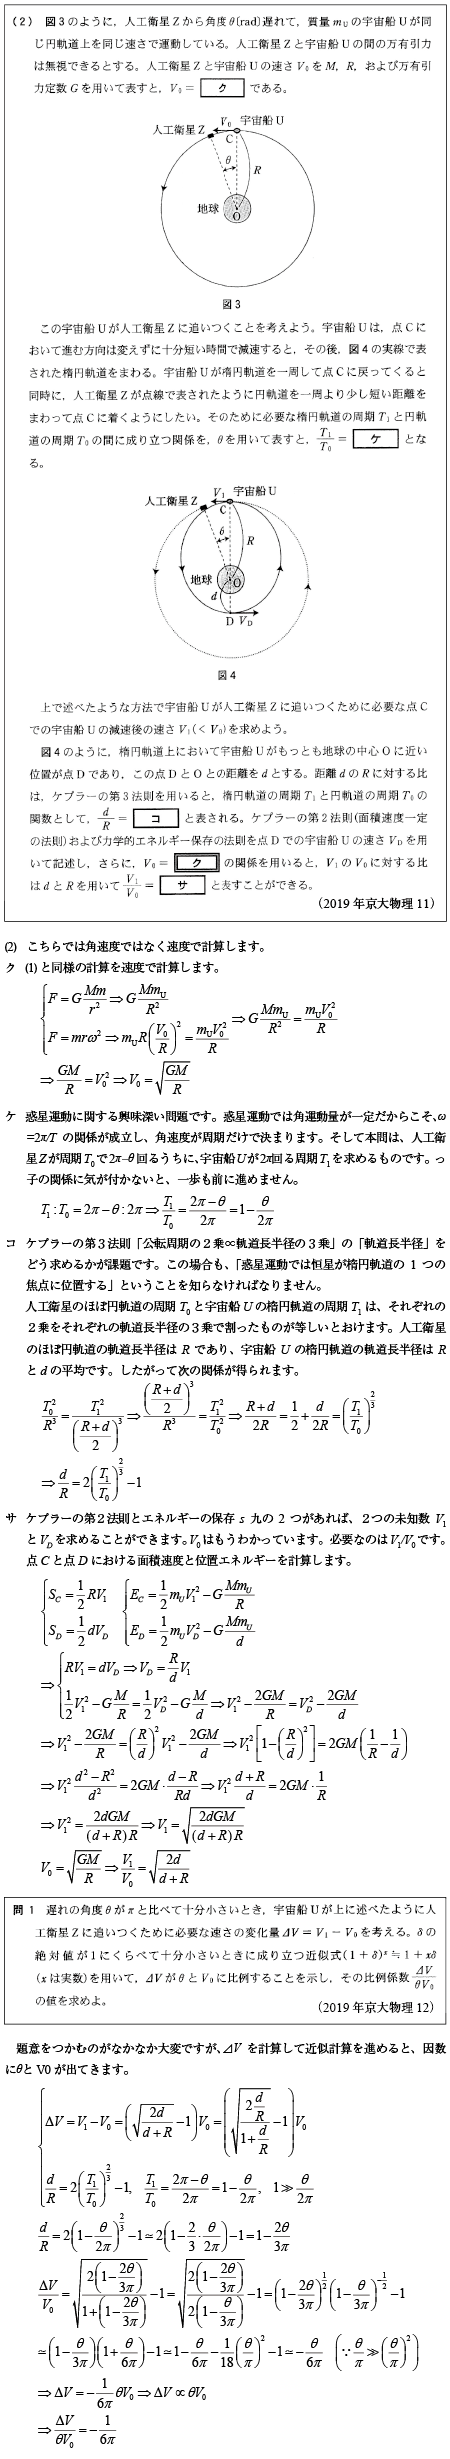 (2) 図3のように，人工衛星Zから角度θ〔rad〕遅れて，質量mUの宇宙船Uが同
じ円軌道上を同じ速さで運動している。人工衛星Zと宇宙船Uの間の万有引力
は無視できるとする。人工衛星Zと宇宙船Uの速さV0をM，R，および万有引
力定数Gを用いて表すと，V0＝ ク である。
人工衛星Z V0 宇宙船U
C
θ
R
地球
O
図3
この宇宙船Uが人工衛星Zに追いつくことを考えよう。宇宙船Uは，点Cに
おいて進む方向は変えずに十分短い時間で減速すると，その後，図4の実線で表
された楕円軌道をまわる。宇宙船Uが楕円軌道を一周して点Cに戻ってくると
同時に，人工衛星Zが点線で表されたように円軌道を一周より少し短い距離を
まわって点Cに着くようにしたい。そのために必要な楕円軌道の周期T1と円軌
道の周期T0の間に成り立つ関係を，θを用いて表すと，T1/T0＝ ケ とな
る。
人工衛星Z V1 宇宙船U
C
R
地球 O
d
D VD
図4
上で述べたような方法で宇宙船Uが人工衛星Zに追いつくために必要な点C
での宇宙船Uの減速後の速さV1(＜V0)を求めよう。
図4のように，楕円軌道上において宇宙船Uがもっとも地球の中心Oに近い
位置が点Dであり，この点DとOとの距離をdとする。距離dのRに対する比
は，ケプラーの第3法則を用いると，楕円軌道の周期T1と円軌道の周期T0の
関数として，d/R＝ コ と表される。ケプラーの第2法則(面積速度一定
の法則)および力学的エネルギー保存の法則を点Dでの宇宙船Uの速さVDを用
いて記述し，さらに，V0＝ ク の関係を用いると，V1のV0に対する比
はdとRを用いてV1/V0＝ サ と表すことができる。
(2019年京大物理11)
(2) こちらでは角速度ではなく速度で計算します。
ク (1)と同様の計算を速度で計算します。
F=G Mm/r² ⇒ G MmU/R²
F=mrω² ⇒ mUR(V0/R)² = mUV0²/R ⇒ G MmU/R² = mUV0²/R
⇒ GM/R = V0² ⇒ V0 = √(GM/R)
ケ 惑星運動に関する興味深い問題です。惑星運動では角運動量が一定だからこそ､ω
=2π/T の関係が成立し、角速度が周期だけで決まります。そして本問は、人工衛
星Zが周期T0で2π–θ回るうちに､宇宙船Uが2π回る周期T1を求めるものです。っ
子の関係に気が付かないと、一歩も前に進めません。
T1:T0=2π−θ:2π ⇒ T1/T0 = (2π−θ)/2π = 1−θ/2π
コ ケプラーの第３法則「公転周期の２乗∝軌道長半径の３乗」の「軌道長半径」を
どう求めるかが課題です。この場合も、「惑星運動では恒星が楕円軌道の 1 つの
焦点に位置する」ということを知らなければなりません。
人工衛星のほぼ円軌道の周期 T0 と宇宙船 U の楕円軌道の周期 T1 は、それぞれの
２乗をそれぞれの軌道長半径の３乗で割ったものが等しいとおけます。人工衛星
のほぼ円軌道の軌道長半径は R であり、宇宙船 U の楕円軌道の軌道長半径は R
と d の平均です。したがって次の関係が得られます。
T0²/R³ = T1²/((R+d)/2)³ ⇒ ((R+d)/2)³/R³ = T1²/T0² ⇒ (R+d)/2R = 1/2 + d/2R = (T1/T0)^(2/3)
⇒ d/R = 2(T1/T0)^(2/3) −1
サ ケプラーの第２法則とエネルギーの保存 s 九の 2 つがあれば、２つの未知数 V1
と VD を求めることができます｡V0 はもうわかっています。必要なのはV1/V0です。
点 C と点 D における面積速度と位置エネルギーを計算します。
SC = 1/2 RV1 EC = 1/2 mUV1² − G MmU/R
SD = 1/2 dVD ED = 1/2 mUVD² − G MmU/d
⇒ RV1 = dVD ⇒ VD = R/d V1
1/2 V1² − G M/R = 1/2 VD² − G M/d ⇒ V1² − 2GM/R = VD² − 2GM/d
⇒ V1² − 2GM/R = (R/d)² V1² − 2GM/d ⇒ V1²[1−(R/d)²] = 2GM(1/R − 1/d)
⇒ V1² (d²−R²)/d² = 2GM·(d−R)/Rd ⇒ V1² (d+R)/d = 2GM·1/R
⇒ V1² = 2dGM/(d+R)R ⇒ V1 = √(2dGM/(d+R)R)
V0 = √(GM/R) ⇒ V1/V0 = √(2d/(d+R))
問1 遅れの角度θがπと比べて十分小さいとき，宇宙船Uが上に述べたように人
工衛星Zに追いつくために必要な速さの変化量ΔV＝V1－V0を考える。δの
絶対値が1にくらべて十分小さいときに成り立つ近似式(1＋δ)^x≒1＋xδ
(xは実数)を用いて，ΔVがθとV0に比例することを示し，その比例係数ΔV/θV0
の値を求めよ。
(2019年京大物理12)
題意をつかむのがなかなか大変ですが､⊿V を計算して近似計算を進めると、因数
にθと V0 が出てきます。
ΔV = V1−V0 = (√(2d/(d+R)) −1)V0 = (√(2 d/R/(1+d/R)) −1)V0
d/R = 2(T1/T0)^(2/3) −1, T1/T0 = (2π−θ)/2π = 1−θ/2π, 1≫θ/2π
d/R = 2(1−θ/2π)^(2/3) −1 ≃ 2(1−2/3·θ/2π)−1 = 1−2θ/3π
ΔV/V0 = √(2(1−2θ/3π)/(1+(1−2θ/3π))) −1 = √(2(1−2θ/3π)/2(1−θ/3π)) −1 = (1−2θ/3π)^(1/2) (1−θ/3π)^(−1/2) −1
≃ (1−θ/3π)(1+θ/6π)−1 ≃ 1−θ/6π − 1/18(θ/π)² −1 ≃ −θ/6π (∵θ/π≫(θ/π)²)
⇒ ΔV = −1/6π θV0 ⇒ ΔV∝θV0
⇒ ΔV/θV0 = −1/6π